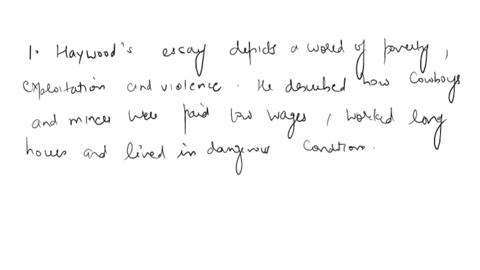 1. Haywood's essay depicts a world of poverty,
exploitation and violence. He described how Cowboys
and miners were paid low wages, worked long
hours and lived in dangerous conditions.